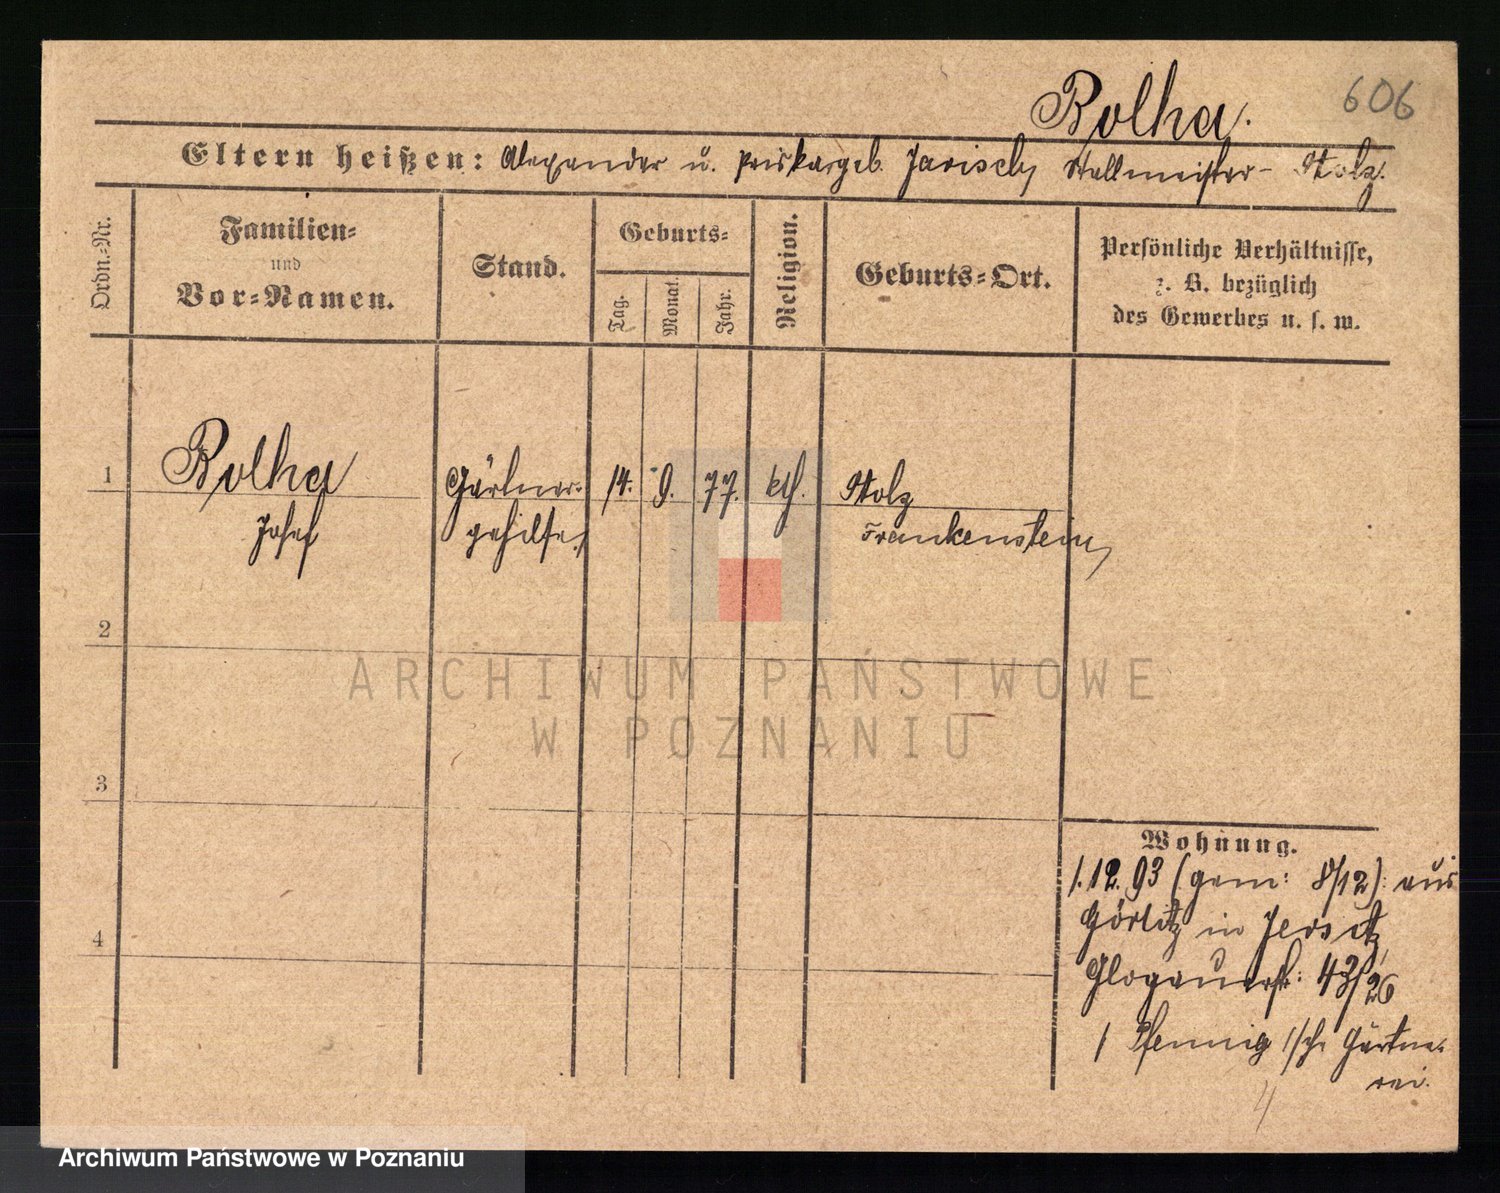 606
Bolha.
Eltern heißen: Alexander u. Priska geb. Jarisch, Stellmeister - Stolz.
Ordn.-Nr.
Familien-
und
Vor-Namen.
Stand.
Geburts-
Tag.
Monat.
Jahr.
Religion.
Geburts-Ort.
Persönliche Verhältnisse,
z. B. bezüglich
des Gewerbes u. s. w.
1 Bolha Gärtner- 14. 9. 77. kth. Stolz
Josef gehilfe. Frankenstein
2
3
4
Wohnung.
1.12.93 (gem: 8/12): aus
Görlitz in Jersitz,
Glogauerstr: 43/26
/ Pfennig'sche Gärtne-
rei.
4
ARCHIWUM PAŃSTWOWE
W POZNANIU
Archiwum Państwowe w Poznaniu